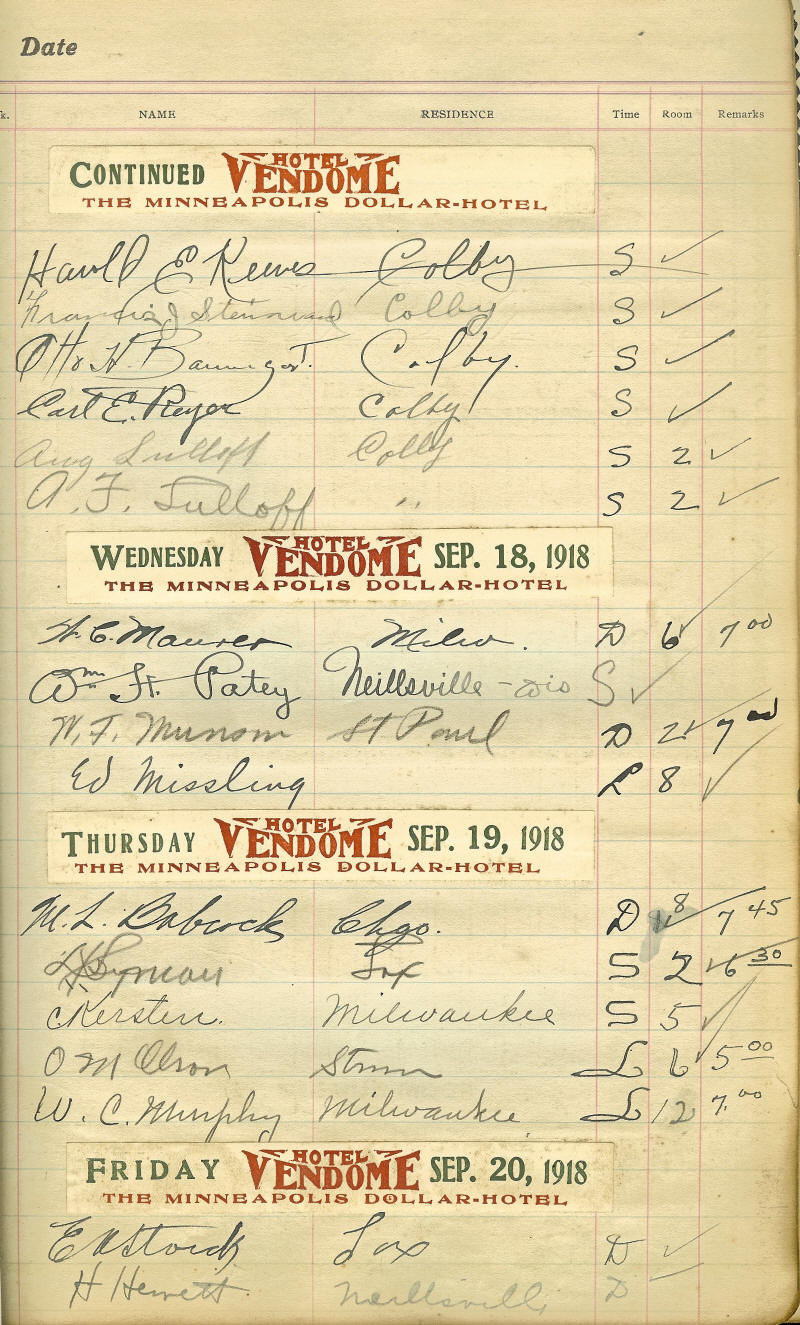 Date
k. NAME RESIDENCE Time Room Remarks
CONTINUED HOTEL VENDOME
THE MINNEAPOLIS DOLLAR-HOTEL
Harold E Reeves Colby S ✓
Francis J Colby S ✓
Otto H. Colby. S ✓
Carl E. Reyer Colby S ✓
Aug Lulloff Colby S 2 ✓
A. F. Lulloff " S 2 ✓
WEDNESDAY HOTEL VENDOME SEP. 18, 1918
THE MINNEAPOLIS DOLLAR-HOTEL
H. C. Maurer Milw. D 6 ✓ 7 00
Wm H. Patey Neillsville - Wis S ✓
W. F. Munson St Paul D 2 ✓ 7 00
Ed Missling L 8 ✓
THURSDAY HOTEL VENDOME SEP. 19, 1918
THE MINNEAPOLIS DOLLAR-HOTEL
M. L. Babcock Chgo. D 8 ✓ 7 45
Lyman Fox S 2 ✓ 6 30
C Kersten. Milwaukee S 5 ✓
O M Olson Strum L 6 ✓ 5 00
W. C. Murphy Milwaukee L 12 7.00
FRIDAY HOTEL VENDOME SEP. 20, 1918
THE MINNEAPOLIS DOLLAR-HOTEL
Fox D ✓
H Hewett. Neillsville D